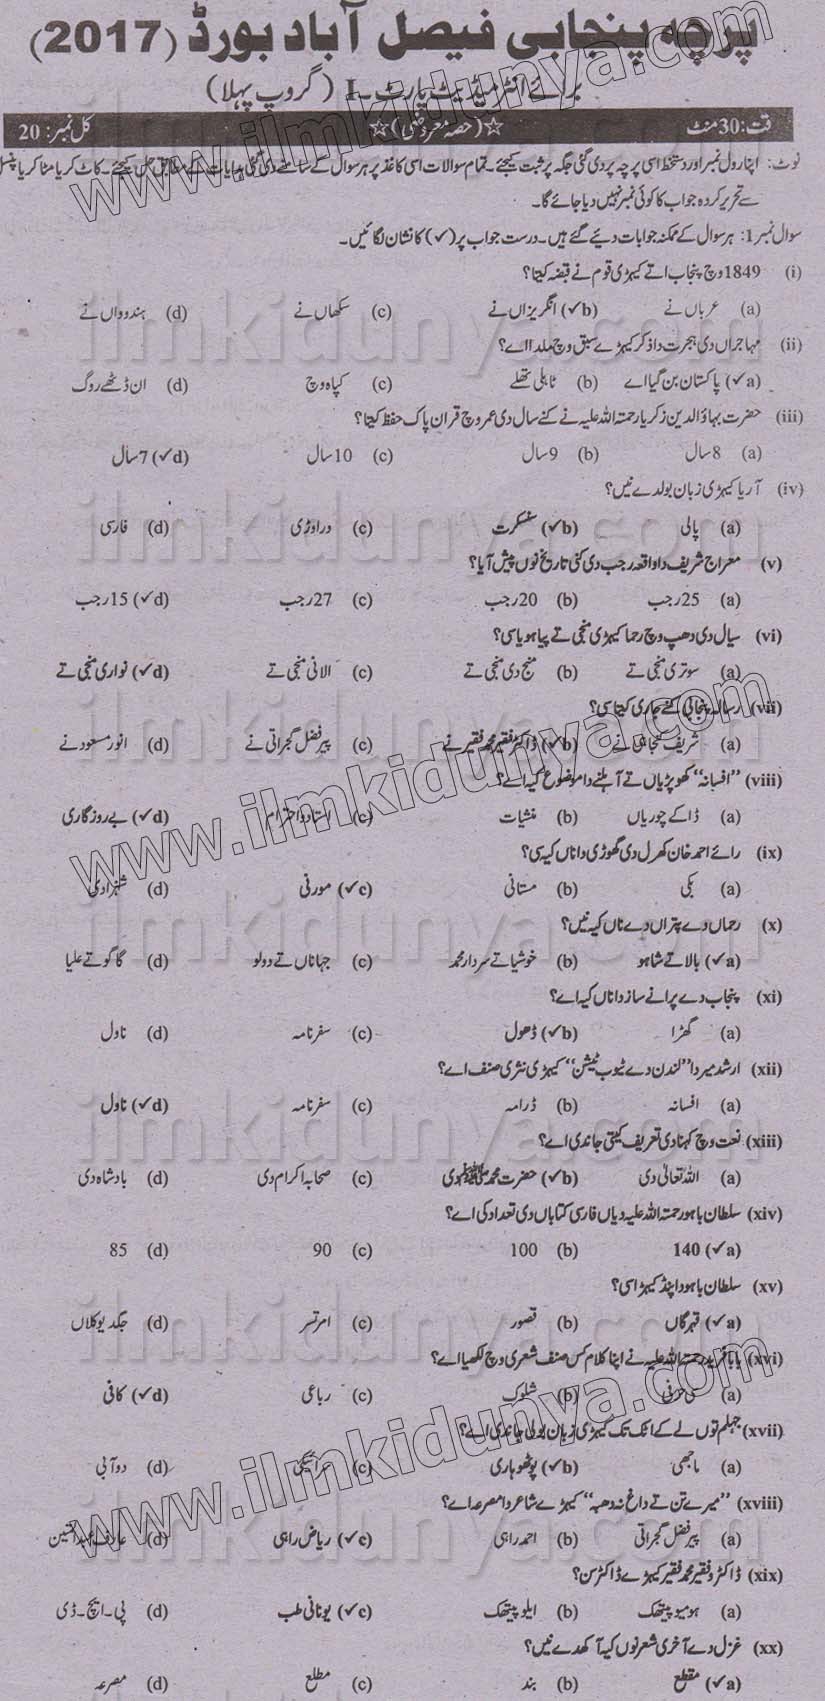 پرچہ پنجابی فیصل آباد بورڈ (2017)
برائے انٹرمیڈیٹ پارٹ ۔ I (گروپ پہلا)
وقت: 30 منٹ ☆(حصہ معروضی)☆ کل نمبر: 20
نوٹ: اپنا رول نمبر اور دستخط اسی پرچہ پر دی گئی جگہ پر ثبت کیجئے۔ تمام سوالات اسی کاغذ پر ہر سوال کے سامنے دی گئی ہدایات کے مطابق حل کیجئے۔ کاٹ کر یا مٹا کر یا پنسل
سے تحریر کردہ جواب کا کوئی نمبر نہیں دیا جائے گا۔
سوال نمبر 1: ہر سوال کے ممکنہ جوابات دیئے گئے ہیں۔ درست جواب پر (✓) کا نشان لگائیں۔
(i) 1849 وچ پنجاب اتے کیہڑی قوم نے قبضہ کیتا؟
(a) عرباں نے (✓b) انگریزاں نے (c) سکھاں نے (d) ہندوواں نے
(ii) مہاجراں دی ہجرت دا ذکر کیہڑے سبق وچ ملدا اے؟
(✓a) پاکستان بن گیا اے (b) ٹاہلی تھلے (c) کپاہ وچ (d) ان ڈٹھے روگ
(iii) حضرت بہاؤالدین زکریا رحمتہ اللہ علیہ نے کنے سال دی عمر وچ قرآن پاک حفظ کیتا؟
(a) 8 سال (b) 9 سال (c) 10 سال (✓d) 7 سال
(iv) آریا کیہڑی زبان بولدے نیں؟
(a) پالی (✓b) سنسکرت (c) دراوڑی (d) فارسی
(v) معراج شریف دا واقعہ رجب دی کنی تاریخ نوں پیش آیا؟
(a) 25 رجب (b) 20 رجب (c) 27 رجب (✓d) 15 رجب
(vi) سیال دی دھپ وچ رحما کیہڑی منجی تے پیا ہویا سی؟
(a) سوتری منجی تے (b) منج دی منجی تے (c) الانی منجی تے (✓d) نواری منجی تے
(vii) رسالہ پنجابی کنے جاری کیتا سی؟
(a) شریف کنجاہی نے (✓b) ڈاکٹر فقیر محمد فقیر نے (c) پیر فضل گجراتی نے (d) انور مسعود نے
(viii) "افسانہ" کھوپڑیاں تے آہلنے دا موضوع کیہ اے؟
(a) ڈاکے چوریاں (b) منشیات (c) استاد دا احترام (✓d) بے روزگاری
(ix) رائے احمد خان کھرل دی گھوڑی دا ناں کیہ سی؟
(a) بکی (b) مستانی (✓c) مورنی (d) شہزادی
(x) رحماں دے پتراں دے ناں کیہ نیں؟
(✓a) بالا تے شاہو (b) خوشیا تے سردار محمد (c) جہاناں تے دولو (d) گاگو تے علیا
(xi) پنجاب دے پرانے ساز دا ناں کیہ اے؟
(a) گھڑا (✓b) ڈھول (c) سفرنامہ (d) ناول
(xii) ارشد میر دا "لندن دے ٹیوب ٹیشن" کیہڑی نثری صنف اے؟
(a) افسانہ (b) ڈرامہ (c) سفرنامہ (✓d) ناول
(xiii) نعت وچ کہنا دی تعریف کیتی جاندی اے؟
(a) اللہ تعالیٰ دی (✓b) حضرت محمد ﷺ دی (c) صحابہ اکرام دی (d) بادشاہ دی
(xiv) سلطان باہو رحمتہ اللہ علیہ دیاں فارسی کتاباں دی تعداد کی اے؟
(✓a) 140 (b) 100 (c) 90 (d) 85
(xv) سلطان باہو دا پنڈ کیہڑا سی؟
(✓a) قہرگاں (b) قصور (c) امرتسر (d) جگدیو کلاں
(xvi) بابا فرید رحمتہ اللہ علیہ نے اپنا کلام کس صنف شعری وچ لکھیا اے؟
(a) سی حرفی (b) شلوک (c) رباعی (✓d) کافی
(xvii) جہلم توں لے کے اٹک تک کیہڑی زبان بولی جاندی اے؟
(a) ماجھی (✓b) پوٹھوہاری (c) سرائیکی (d) دوآبی
(xviii) "میرے تن تے داغ نہ دھبہ" کیہڑے شاعر دا مصرعہ اے؟
(a) پیر فضل گجراتی (b) احمد راہی (✓c) ریاض راہی (d) عارف عبدالمتین
(xix) ڈاکٹر فقیر محمد فقیر کیہڑے ڈاکٹر سن؟
(a) ہومیو پیتھک (b) ایلو پیتھک (✓c) یونانی طب (d) پی۔ ایچ۔ ڈی
(xx) غزل دے آخری شعر نوں کیہ آکھدے نیں؟
(✓a) مقطع (b) بند (c) مطلع (d) مصرعہ
www.ilmkidunya.com